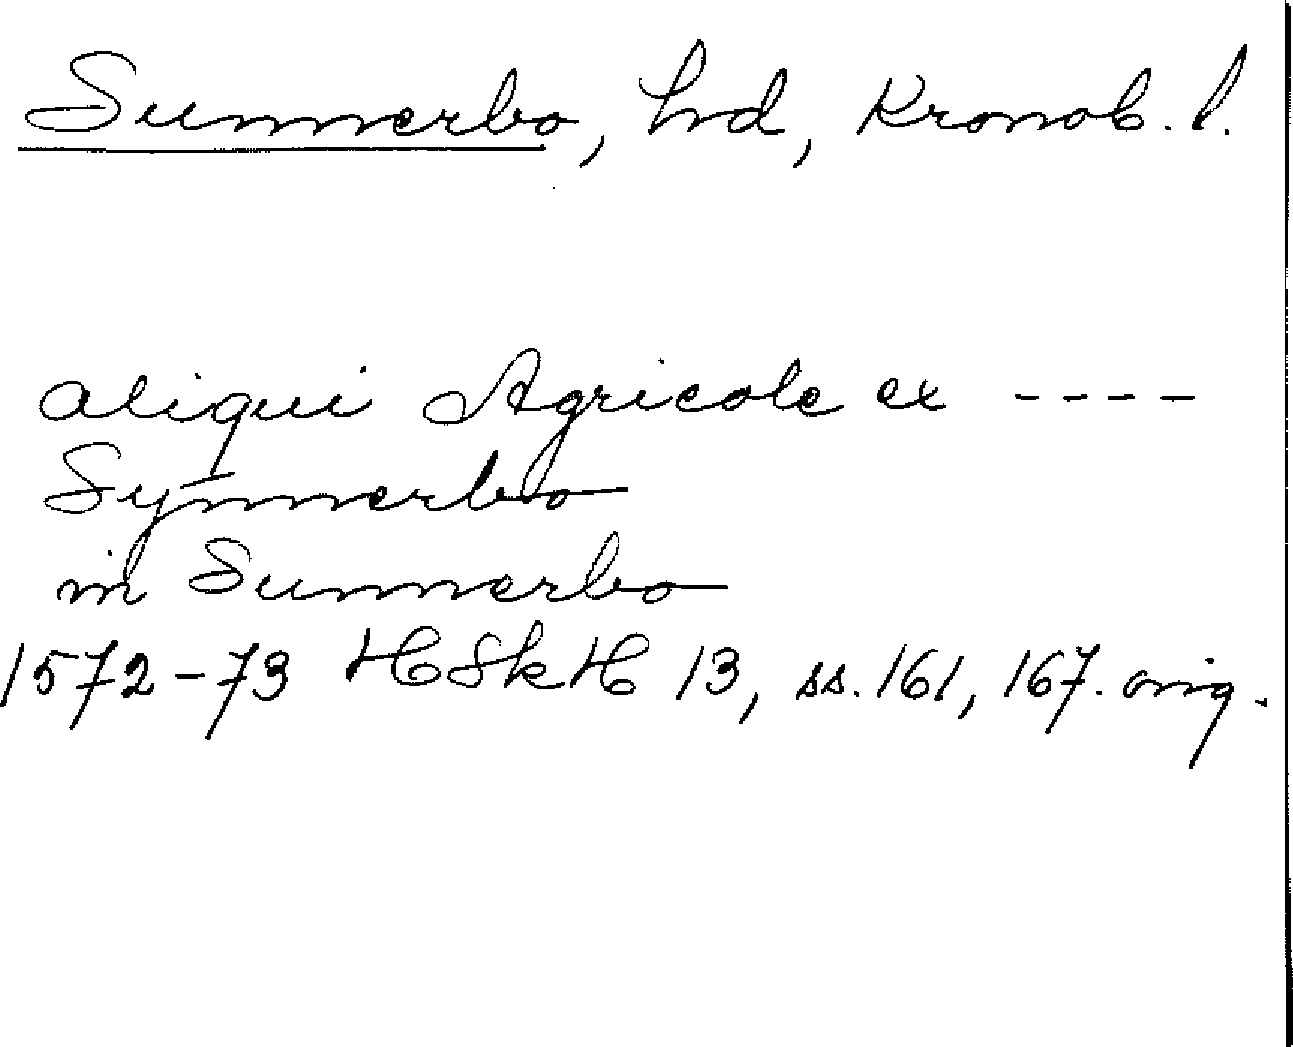 Sunnerbo, hd, Kronob. l.
aliqui Agricole ex ----
Synnerbo
in Sunnerbo
1572-73 HSkH 13, ss. 161, 167. orig.